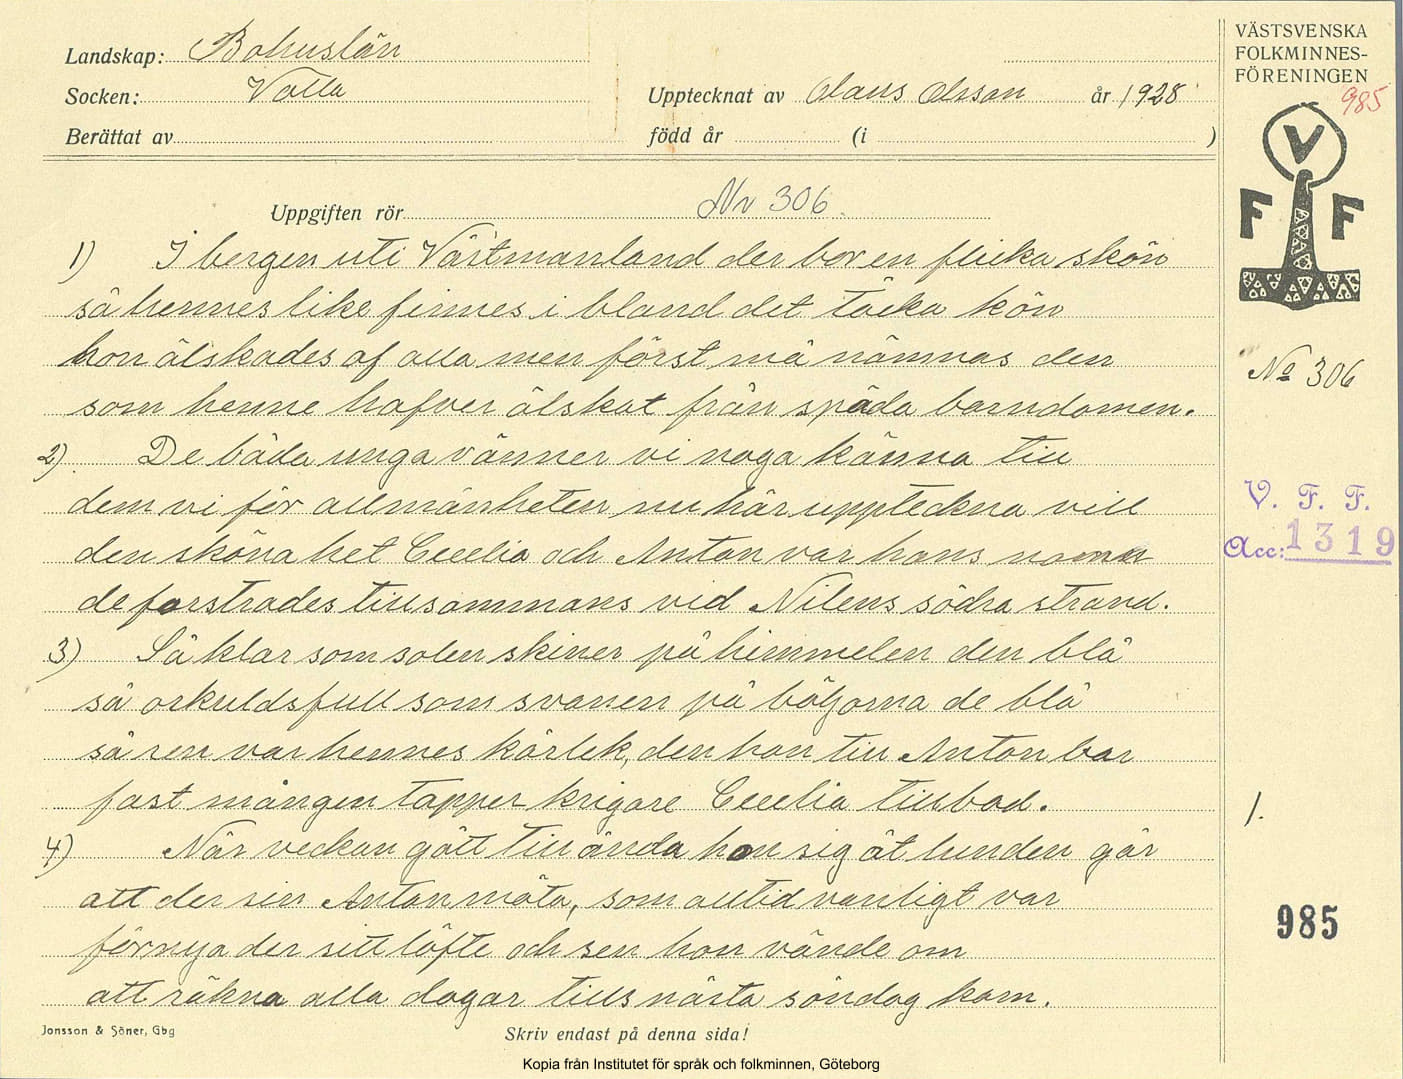 Landskap: Bohuslän
Socken: Valla
Upptecknat av Olaus Olsson år 1928
Berättat av
född år (i )
VÄSTSVENSKA
FOLKMINNES-
FÖRENINGEN
985
V
F F
Uppgiften rör Nr 306
1) I bergen uti Västmanland der bor en flicka skön
så hennes like finnes i bland det täcka kön
hon älskades af alla men först må nämnas den
som henne hafver älskat från späda barndomen.
2) De båda unga vänner vi noga känna till
dem vi för allmänheten nu här uppteckna vill
den sköna het Cecelia och Anton var hans namn
de fostrades tillsammans vid Nilens södra strand.
3) Så klar som solen skiner på himmelen den blå
så oskuldsfull som svanen på böljorna de blå
så ren var hennes kärlek, den hon till Anton bar
fast mången tapper krigare Cecelia tillbad.
4) När veckan gått till ända hon sig åt lunden går
att der sin Anton möta, som alltid vanligt var
förnya der sitt löfte och sen hon vände om
att räkna alla dagar tills nästa söndag kom.
No 306
V. F. F.
Acc: 1319
1.
985
Jonsson & Söner, Gbg
Skriv endast på denna sida!
Kopia från Institutet för språk och folkminnen, Göteborg